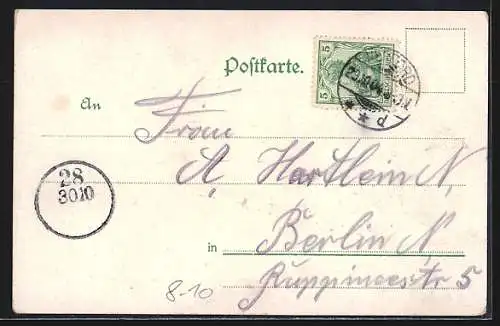 Postkarte.
5 5
An Frau
A. Hartlein N.
28
3010
in Berlin N
Ruppinerstr 5
8-10